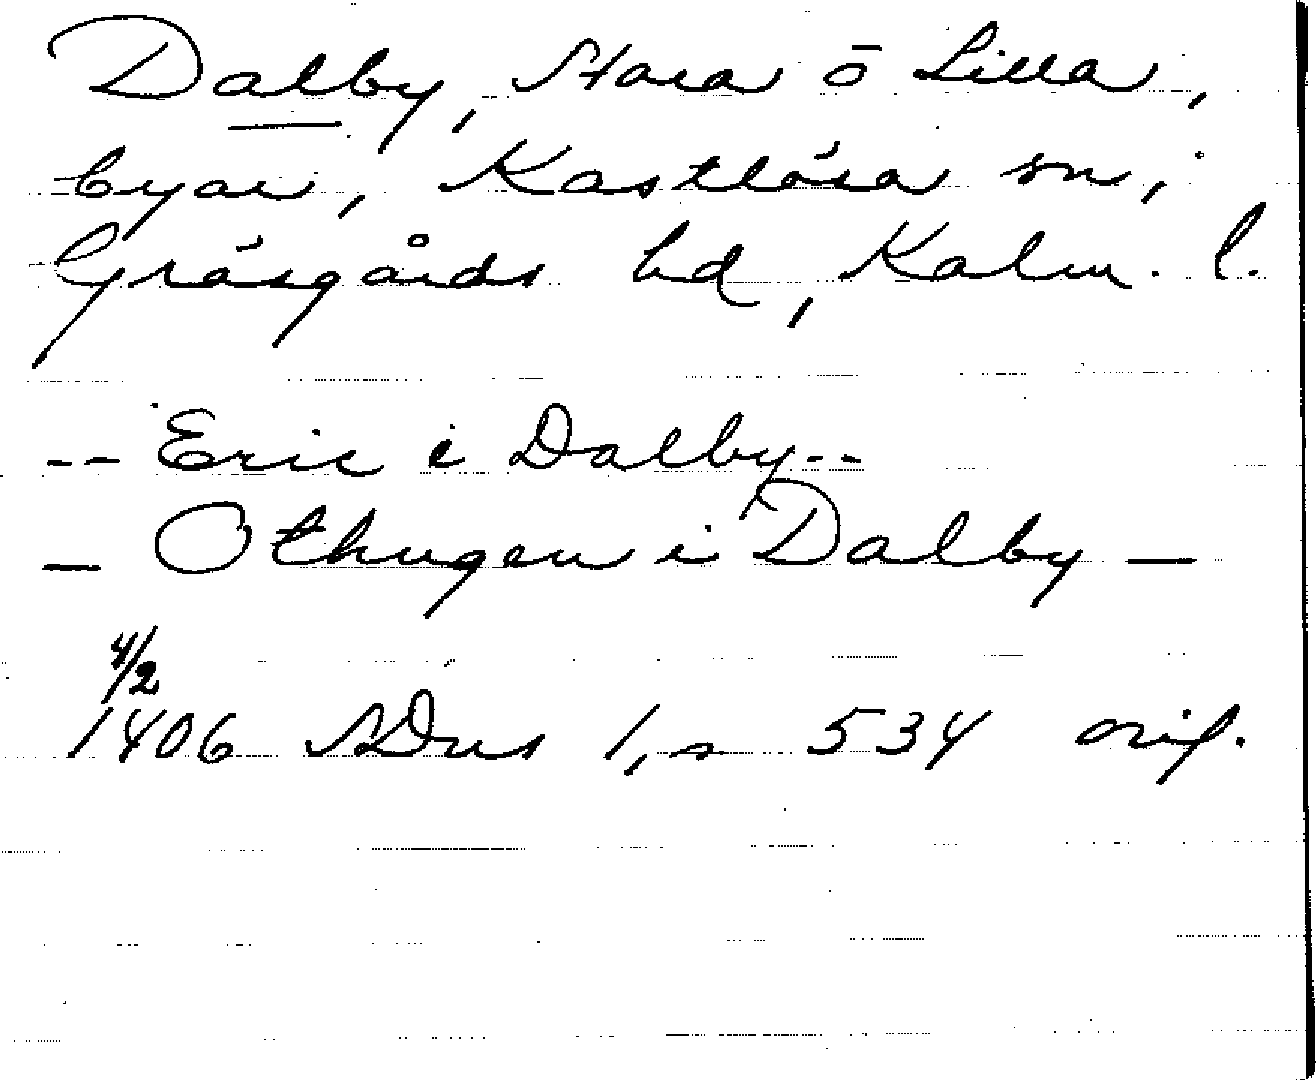 Dalby, Stora o Lilla,
byar, Kastlösa sn,
Gräsgårds hd, Kalm. l.
-- Eric i Dalby --
- Othngen i Dalby -
4/2
1406 SDns 1, s 534 orig.